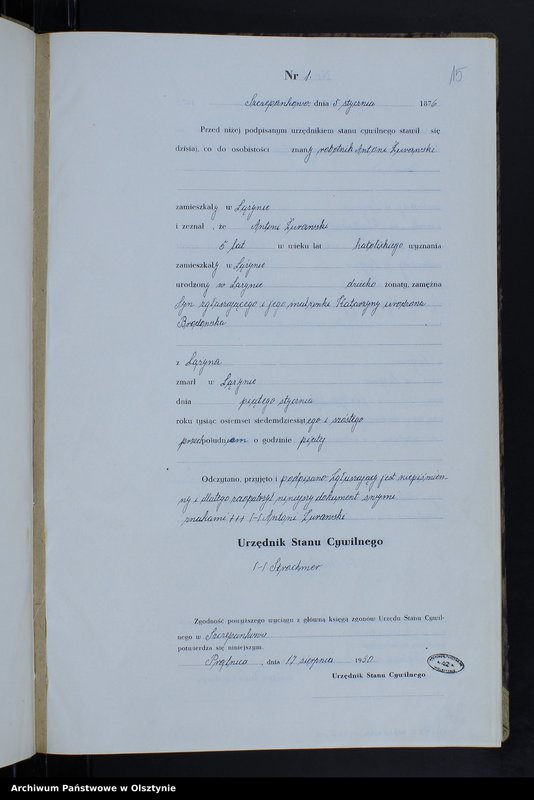 Nr 1.
15
Szczepankowo, dnia 5 stycznia 1876
Przed niżej podpisanym urzędnikiem stanu cywilnego stawił się
dzisiaj, co do osobistości znany, robotnik Antoni Żurawski
zamieszkały w Łążynie
i zeznał, że Antoni Żurawski
5 lat w wieku lat katolickiego wyznania
zamieszkały w Łążynie
urodzony w Łążynie dziecko żonaty, zamężna
syn zgłaszającego i jego małżonki Katarzyny urodzona
z Łążyna
zmarł w Łążynie
dnia piątego stycznia
roku tysiąc osiemset siedemdziesiątego i szóstego
przedpołudniem o godzinie piątej
Odczytano, przyjęto i podpisano: Zgłaszający jest niepiśmien-
ny i dlatego zaopatrzył niniejszy dokument swymi
znakami +++ /-/ Antoni Żurawski
Urzędnik Stanu Cywilnego
/-/
Zgodność powyższego wyciągu z główną księgą zgonów Urzędu Stanu Cywil-
nego w Szczepankowie
potwierdza się niniejszym.
Prątnica, dnia 17 sierpnia 1950
Urzędnik Stanu Cywilnego
Archiwum Państwowe w Olsztynie